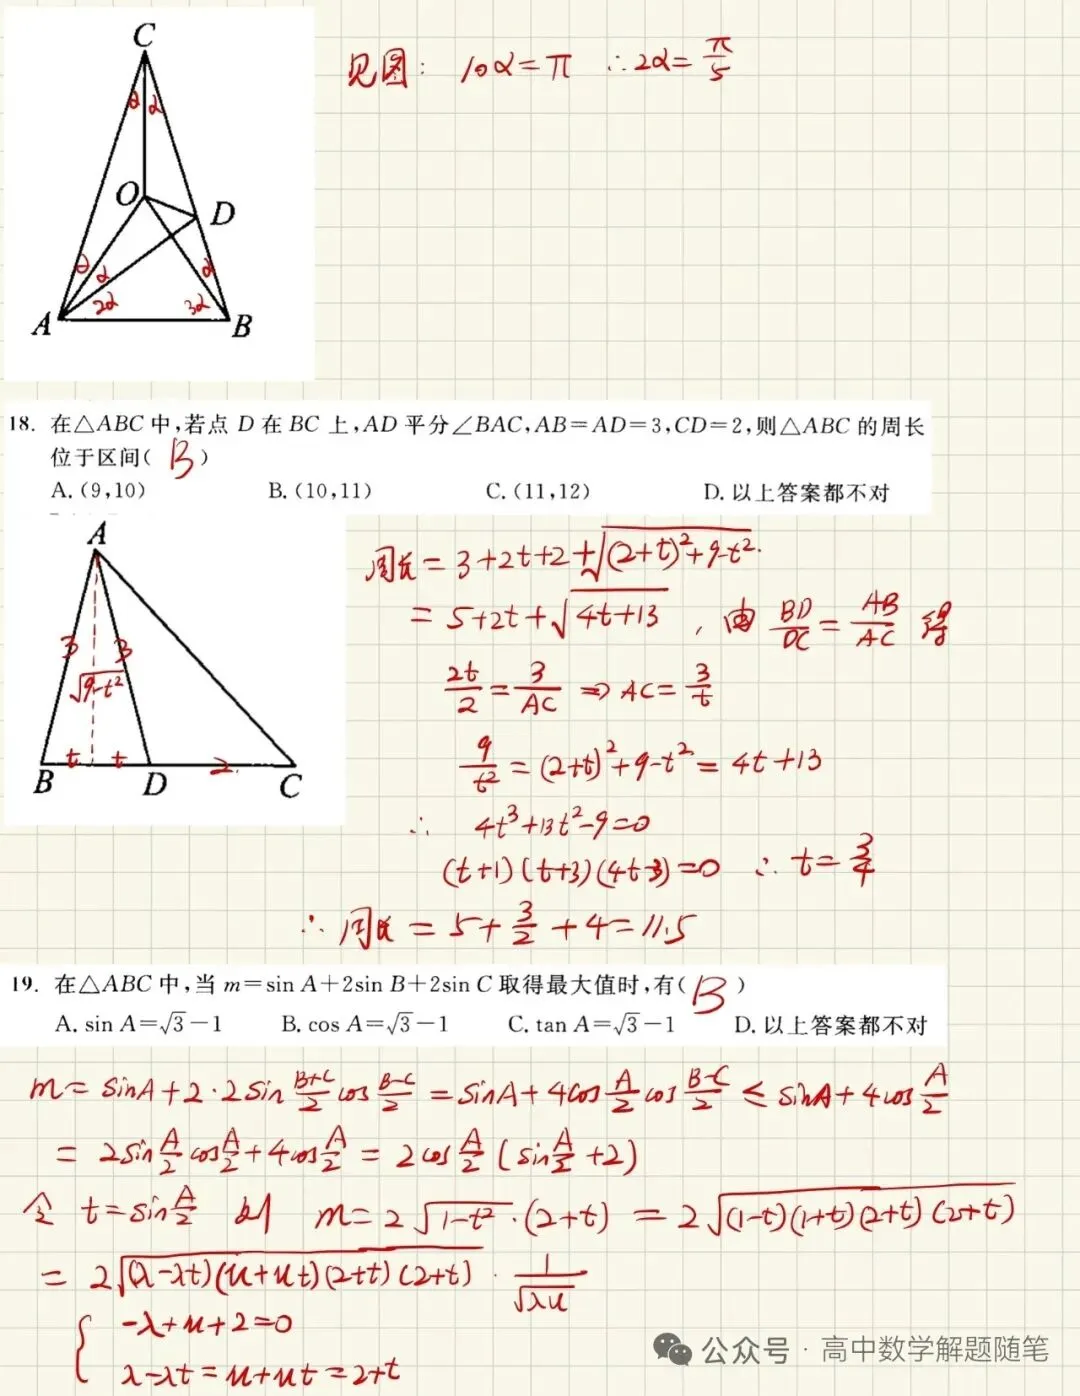 C
α α
O
D
α α α
2α 3α
A B
见图: 10α=π ∴2α=π/5
18. 在△ABC 中,若点 D 在 BC 上,AD 平分∠BAC,AB=AD=3,CD=2,则△ABC 的周长
位于区间( B )
A. (9,10) B. (10,11) C. (11,12) D. 以上答案都不对
A
3 3
√(9-t²)
t t 2
B D C
周长=3+2t+2+√((2+t)²+9-t²).
=5+2t+√(4t+13) , 由 BD/DC=AB/AC 得
2t/2=3/AC ⇒ AC=3/t
9/t²=(2+t)²+9-t²=4t+13
∴ 4t³+13t²-9=0
(t+1)(t+3)(4t-3)=0 ∴ t=3/4
∴ 周长=5+3/2+4=11.5
19. 在△ABC 中,当 m=sin A+2sin B+2sin C 取得最大值时,有( B )
A. sin A=√3-1 B. cos A=√3-1 C. tan A=√3-1 D. 以上答案都不对
m=sinA+2·2sin (B+C)/2 cos (B-C)/2=sinA+4cos A/2 cos (B-C)/2 ≤ sinA+4cos A/2
=2sin A/2 cos A/2+4cos A/2=2cos A/2 (sin A/2+2)
令 t=sin A/2 则 m=2√(1-t²)·(2+t)=2√((1-t)(1+t)(2+t)(2+t))
=2√((λ-λt)(u+ut)(2+t)(2+t))·1/√(λu)
{ -λ+u+2=0
λ-λt=u+ut=2+t
公众号·高中数学解题随笔